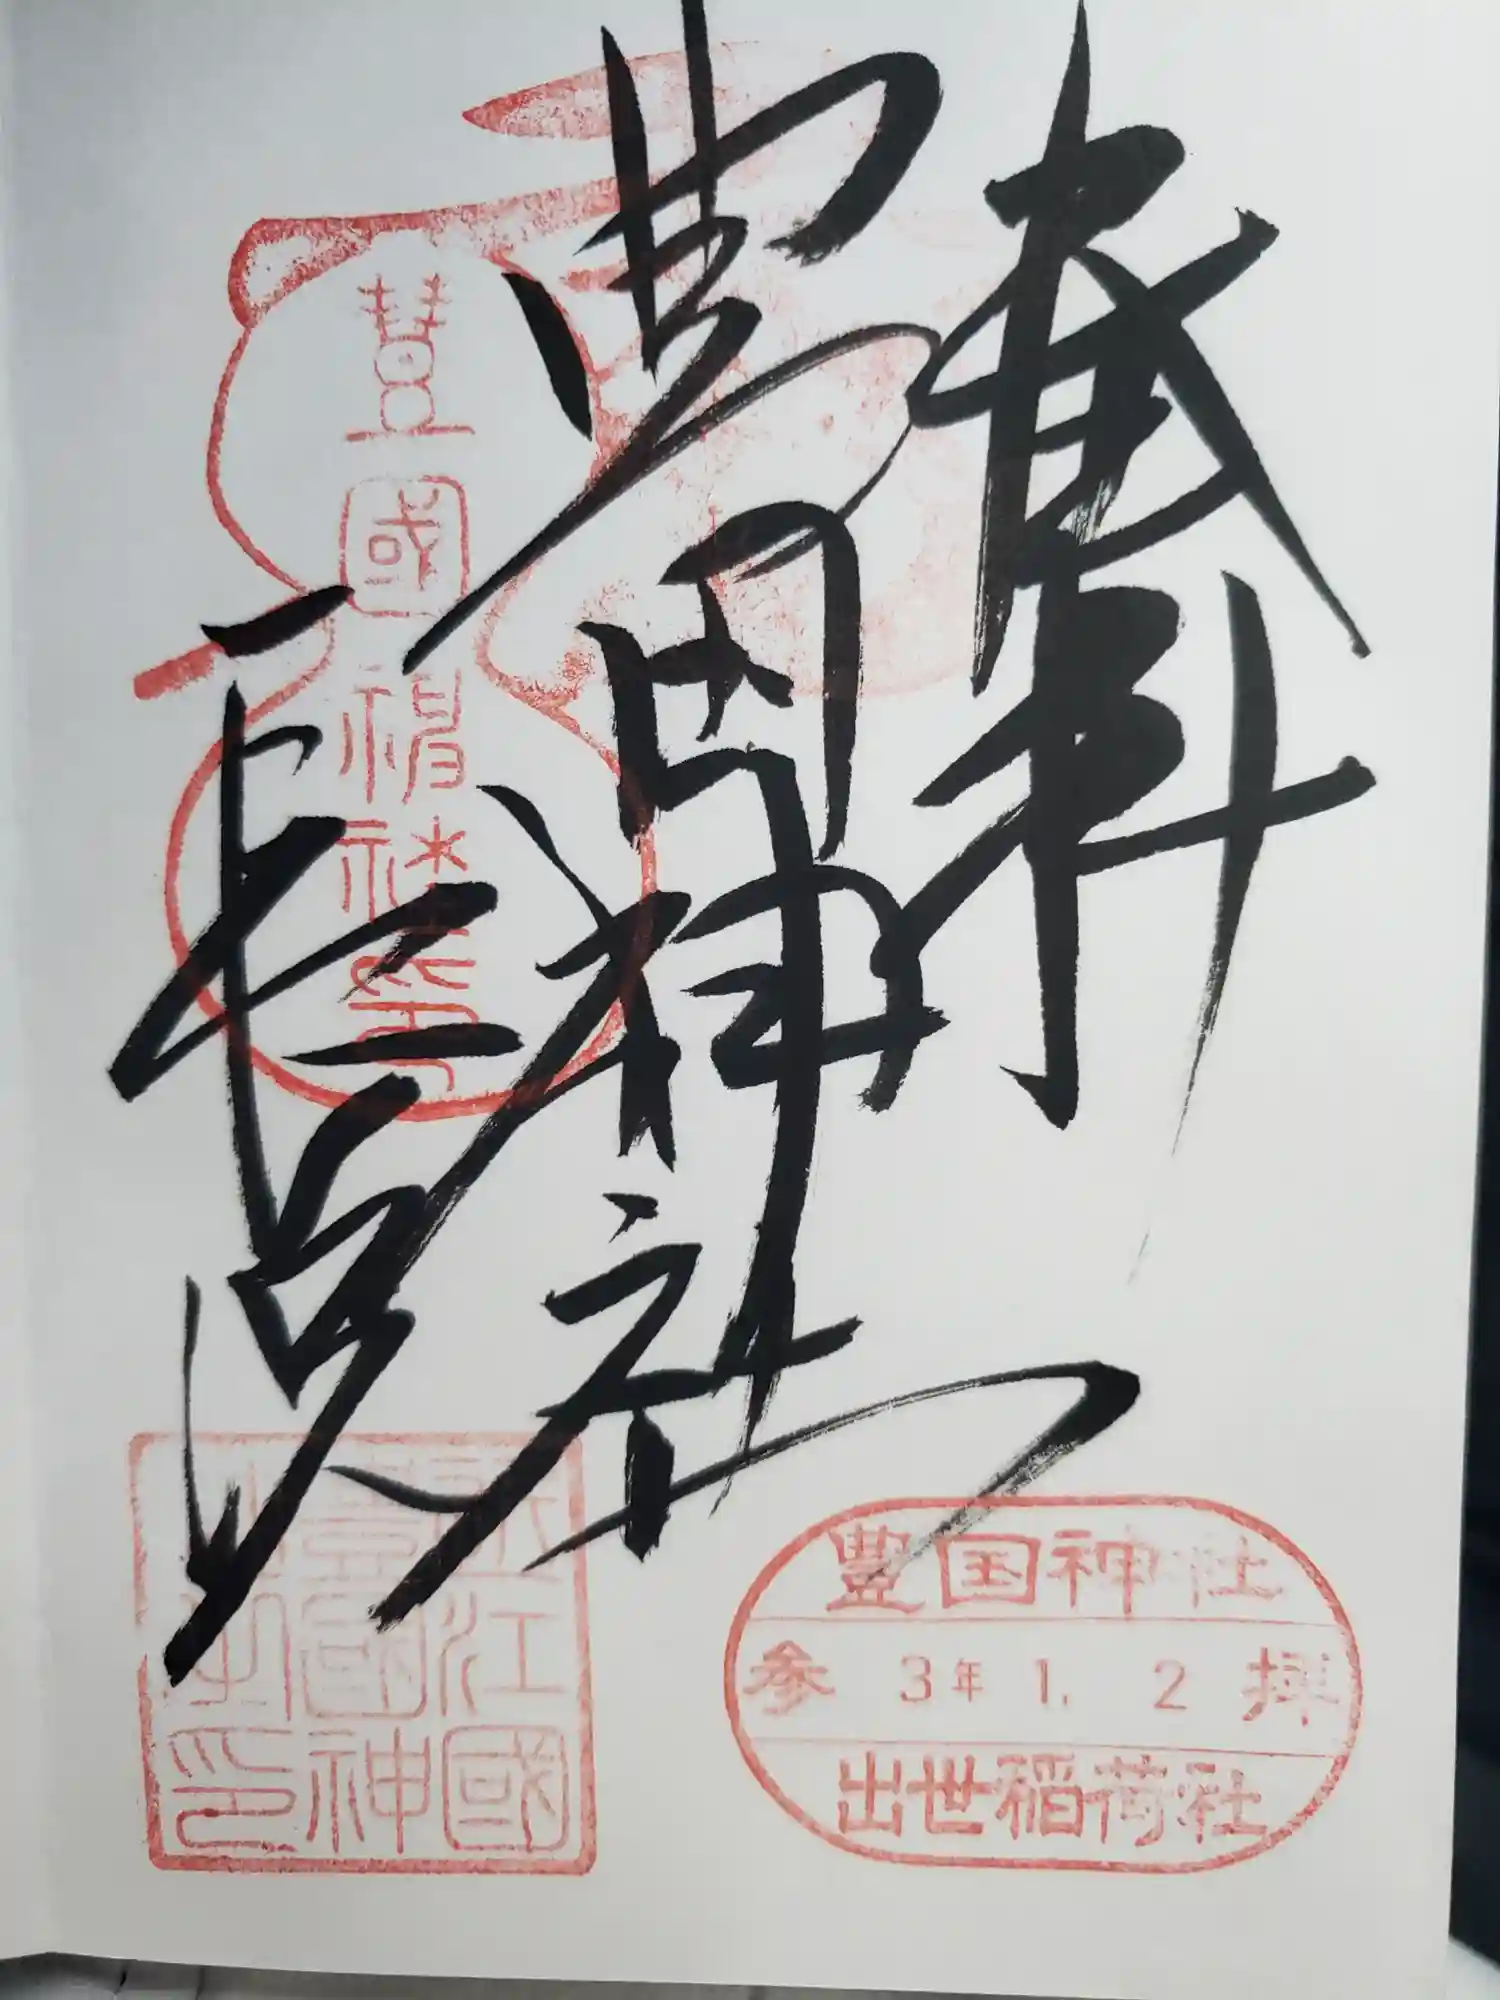 奉拝
豊国神社
長浜
豐國神社印
近江國
豊國神
社之印
豊国神社
参 3年 1. 2 拝
出世稲荷社